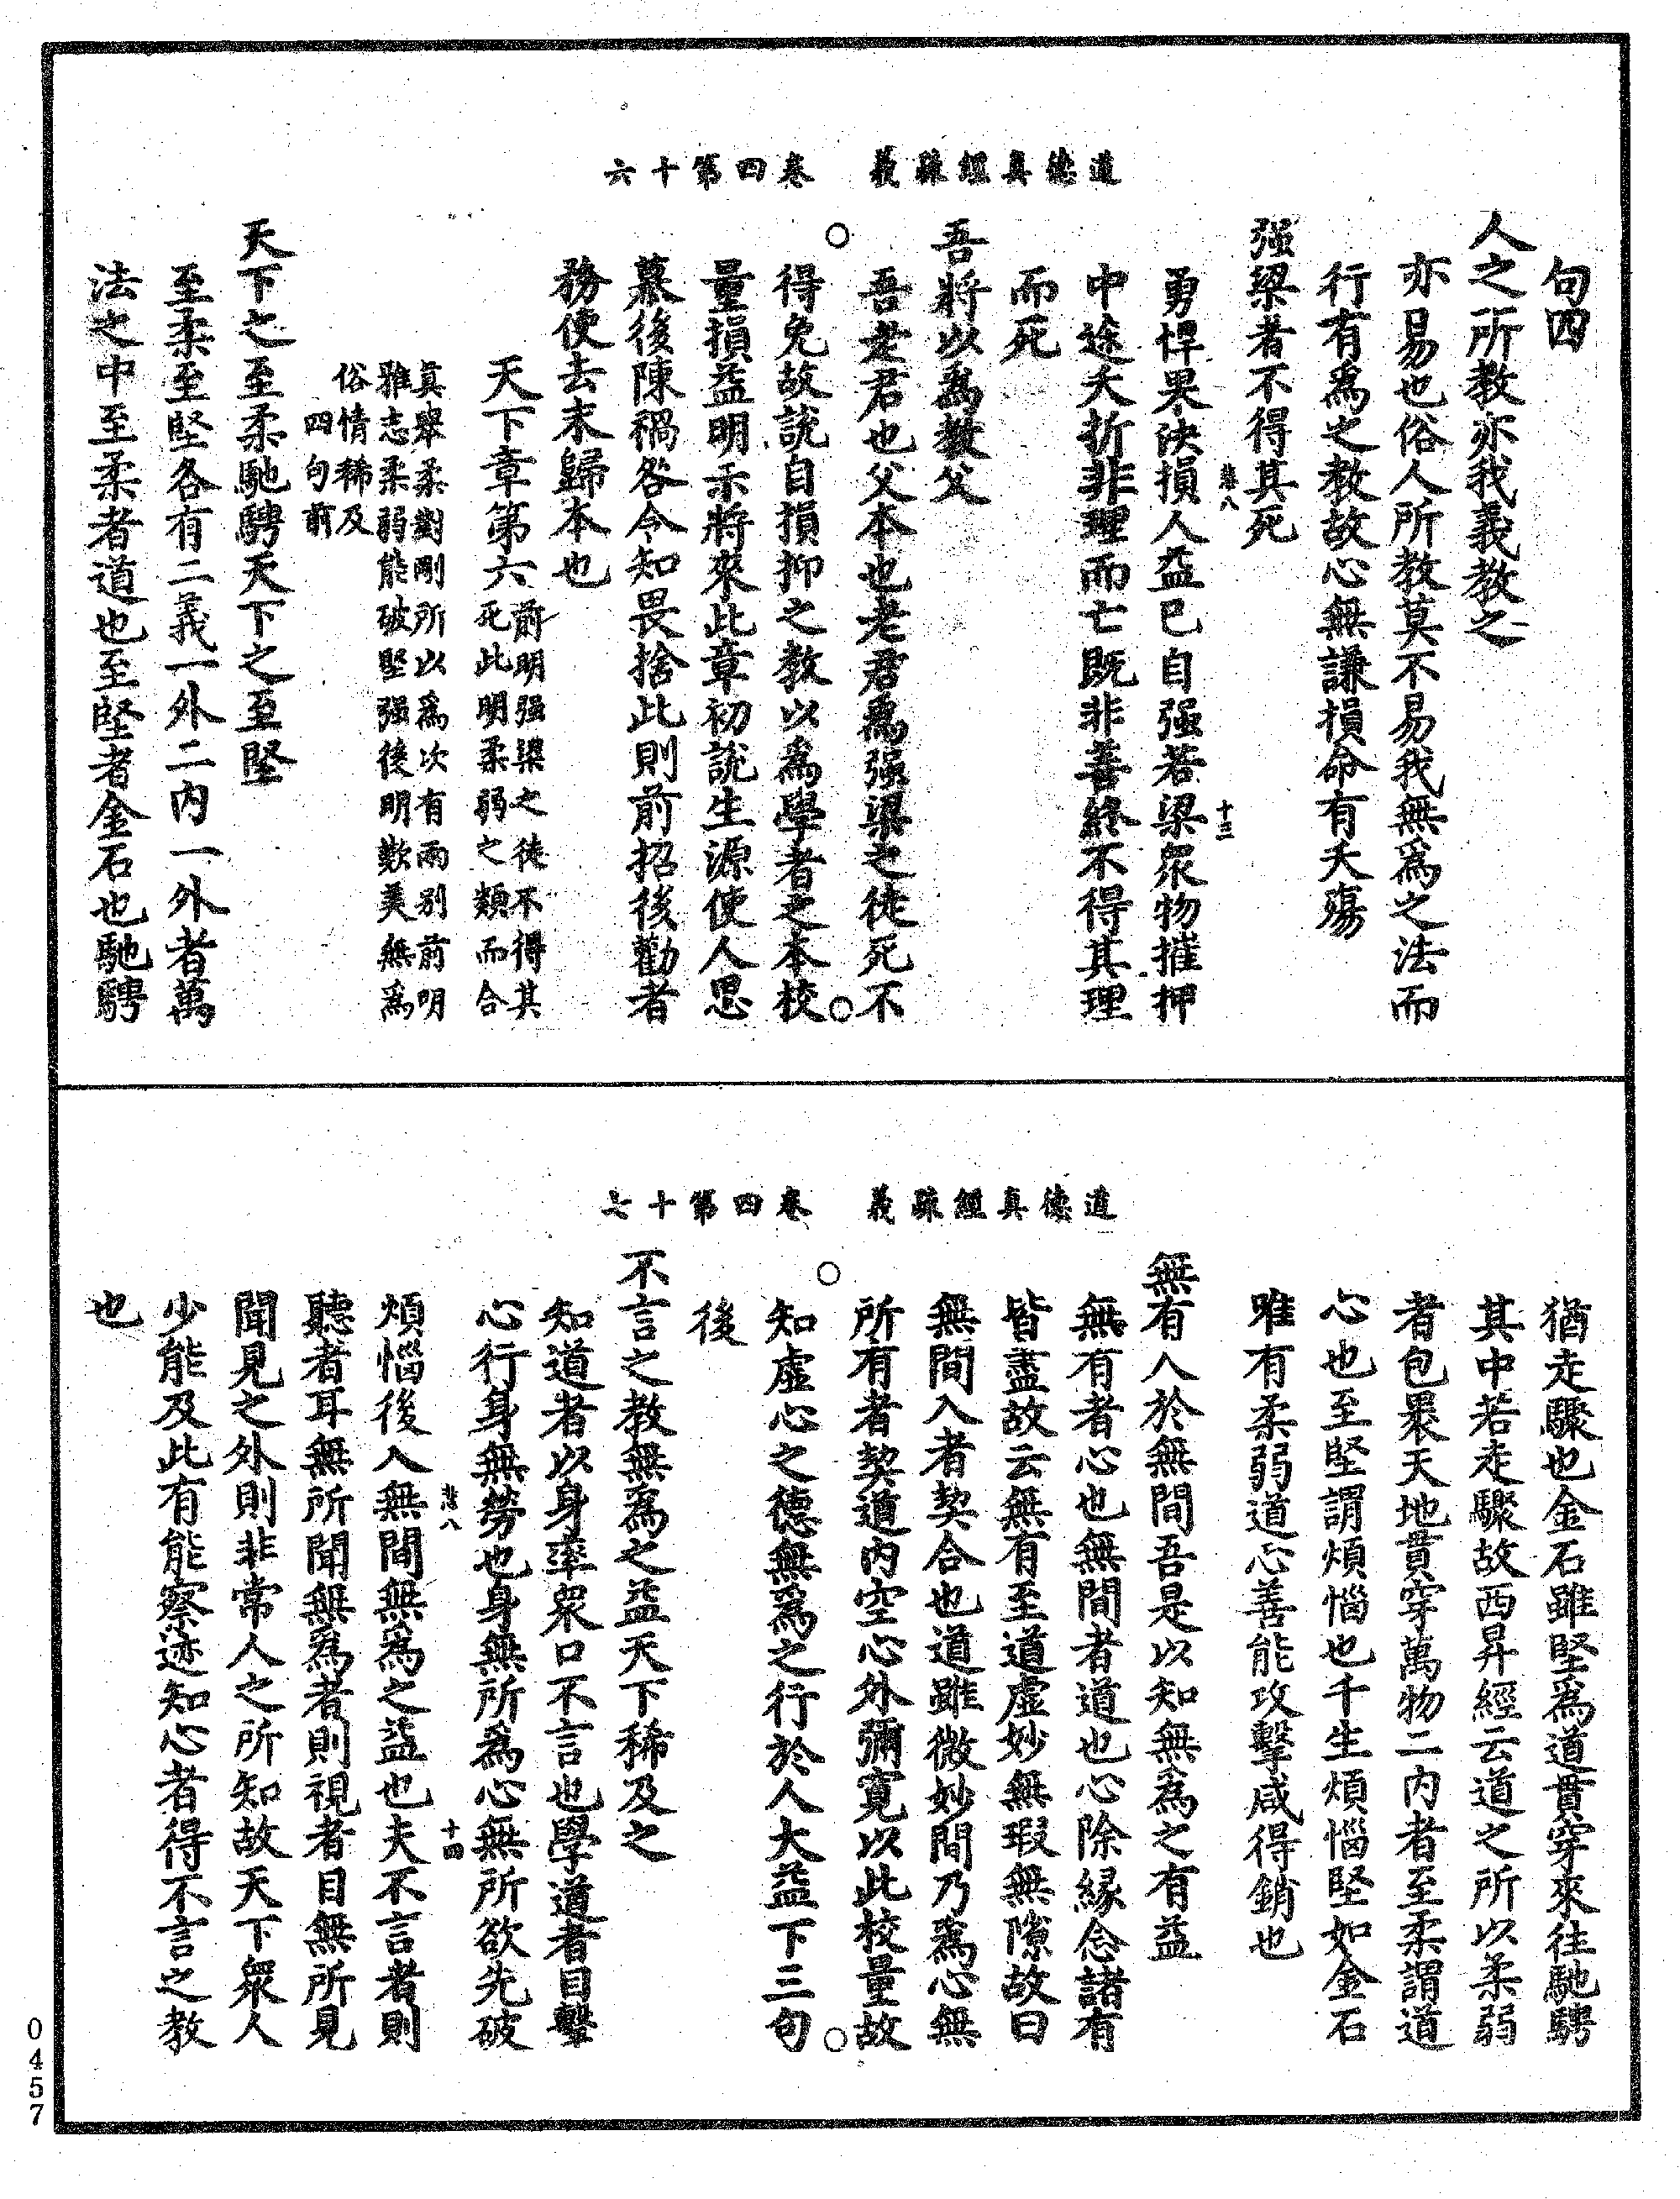 道德真經疏義　卷四第十六
句四
人之所教亦我義教之
亦易也俗人所教莫不易我無爲之法而
行有爲之教故心無謙損命有夭殤
强梁者不得其死
勇悍果決損人益已自强若梁衆物摧押
中途夭折非理而亡既非善終不得其理
而死
吾將以爲教父
吾老君也父本也老君爲强梁之徒死不
得免故說自損抑之教以爲學者之本校
量損益明示將來此章初說生源使人思
慕後陳禍咎令知畏捨此則前招後勸者
務使去末歸本也
天下章第六
前明强梁之徒不得其
死此明柔弱之類而合
真舉柔對剛所以爲次有兩別前明
雅志柔弱能破堅强後明歎美無爲
俗情稀及
四句前
天下之至柔馳騁天下之至堅
至柔至堅各有二義一外二内一外者萬
法之中至柔者道也至堅者金石也馳騁
慈八
十三
道德真經疏義　卷四第十七
猶走驟也金石雖堅爲道貫穿來往馳騁
其中若走驟故西昇經云道之所以柔弱
者包裹天地貫穿萬物二内者至柔謂道
心也至堅謂煩惱也千生煩惱堅如金石
唯有柔弱道心善能攻擊咸得銷也
無有入於無間吾是以知無為之有益
無有者心也無間者道也心除緣念諸有
皆盡故云無有至道虛妙無瑕無隙故曰
無間入者契合也道雖微妙間乃爲心無
所有者契道内空心外彌寬以此校量故
知虛心之德無爲之行於人大益下三句
後
不言之教無為之益天下稀及之
知道者以身率衆口不言也學道者目擊
心行身無勞也身無所爲心無所欲先破
煩惱後入無間無為之益也夫不言者則
聽者耳無所聞無爲者則視者目無所見
聞見之外則非常人之所知故天下衆人
少能及此有能察迹知心者得不言之教
也
慈八
十四
0457